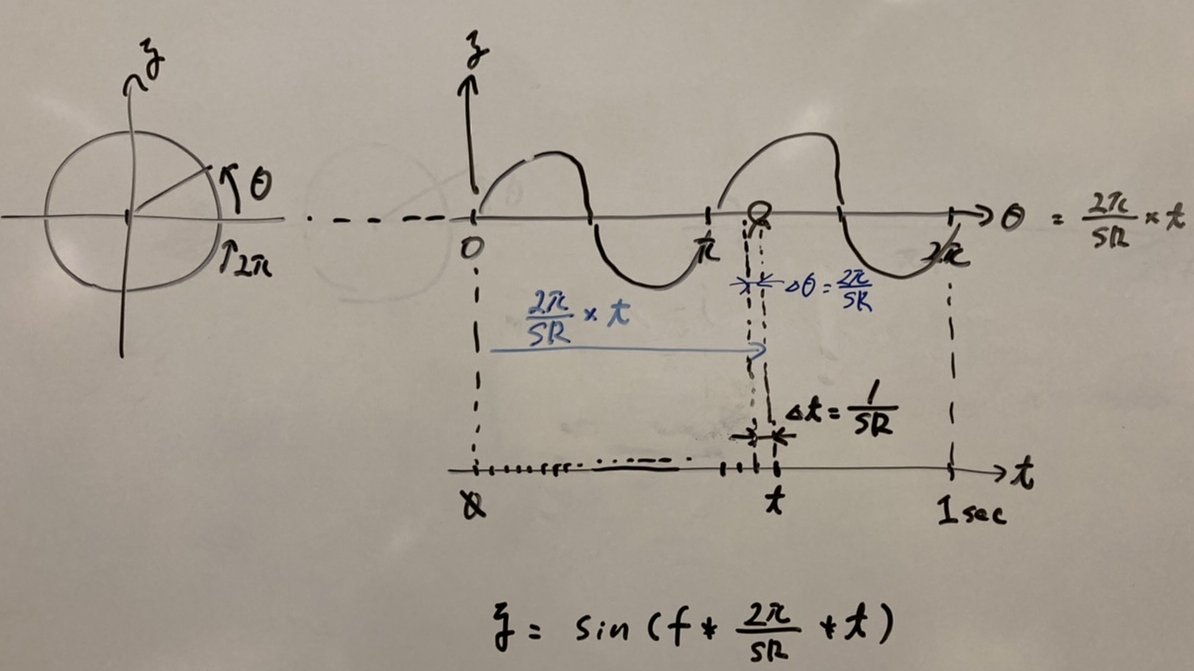 y
θ
2π
y
0
π
2π
θ = 2π/SR × t
Δθ = 2π/SR
2π/SR × t
Δt = 1/SR
0
t
1 sec
t
y = sin (f * 2π/SR * t)